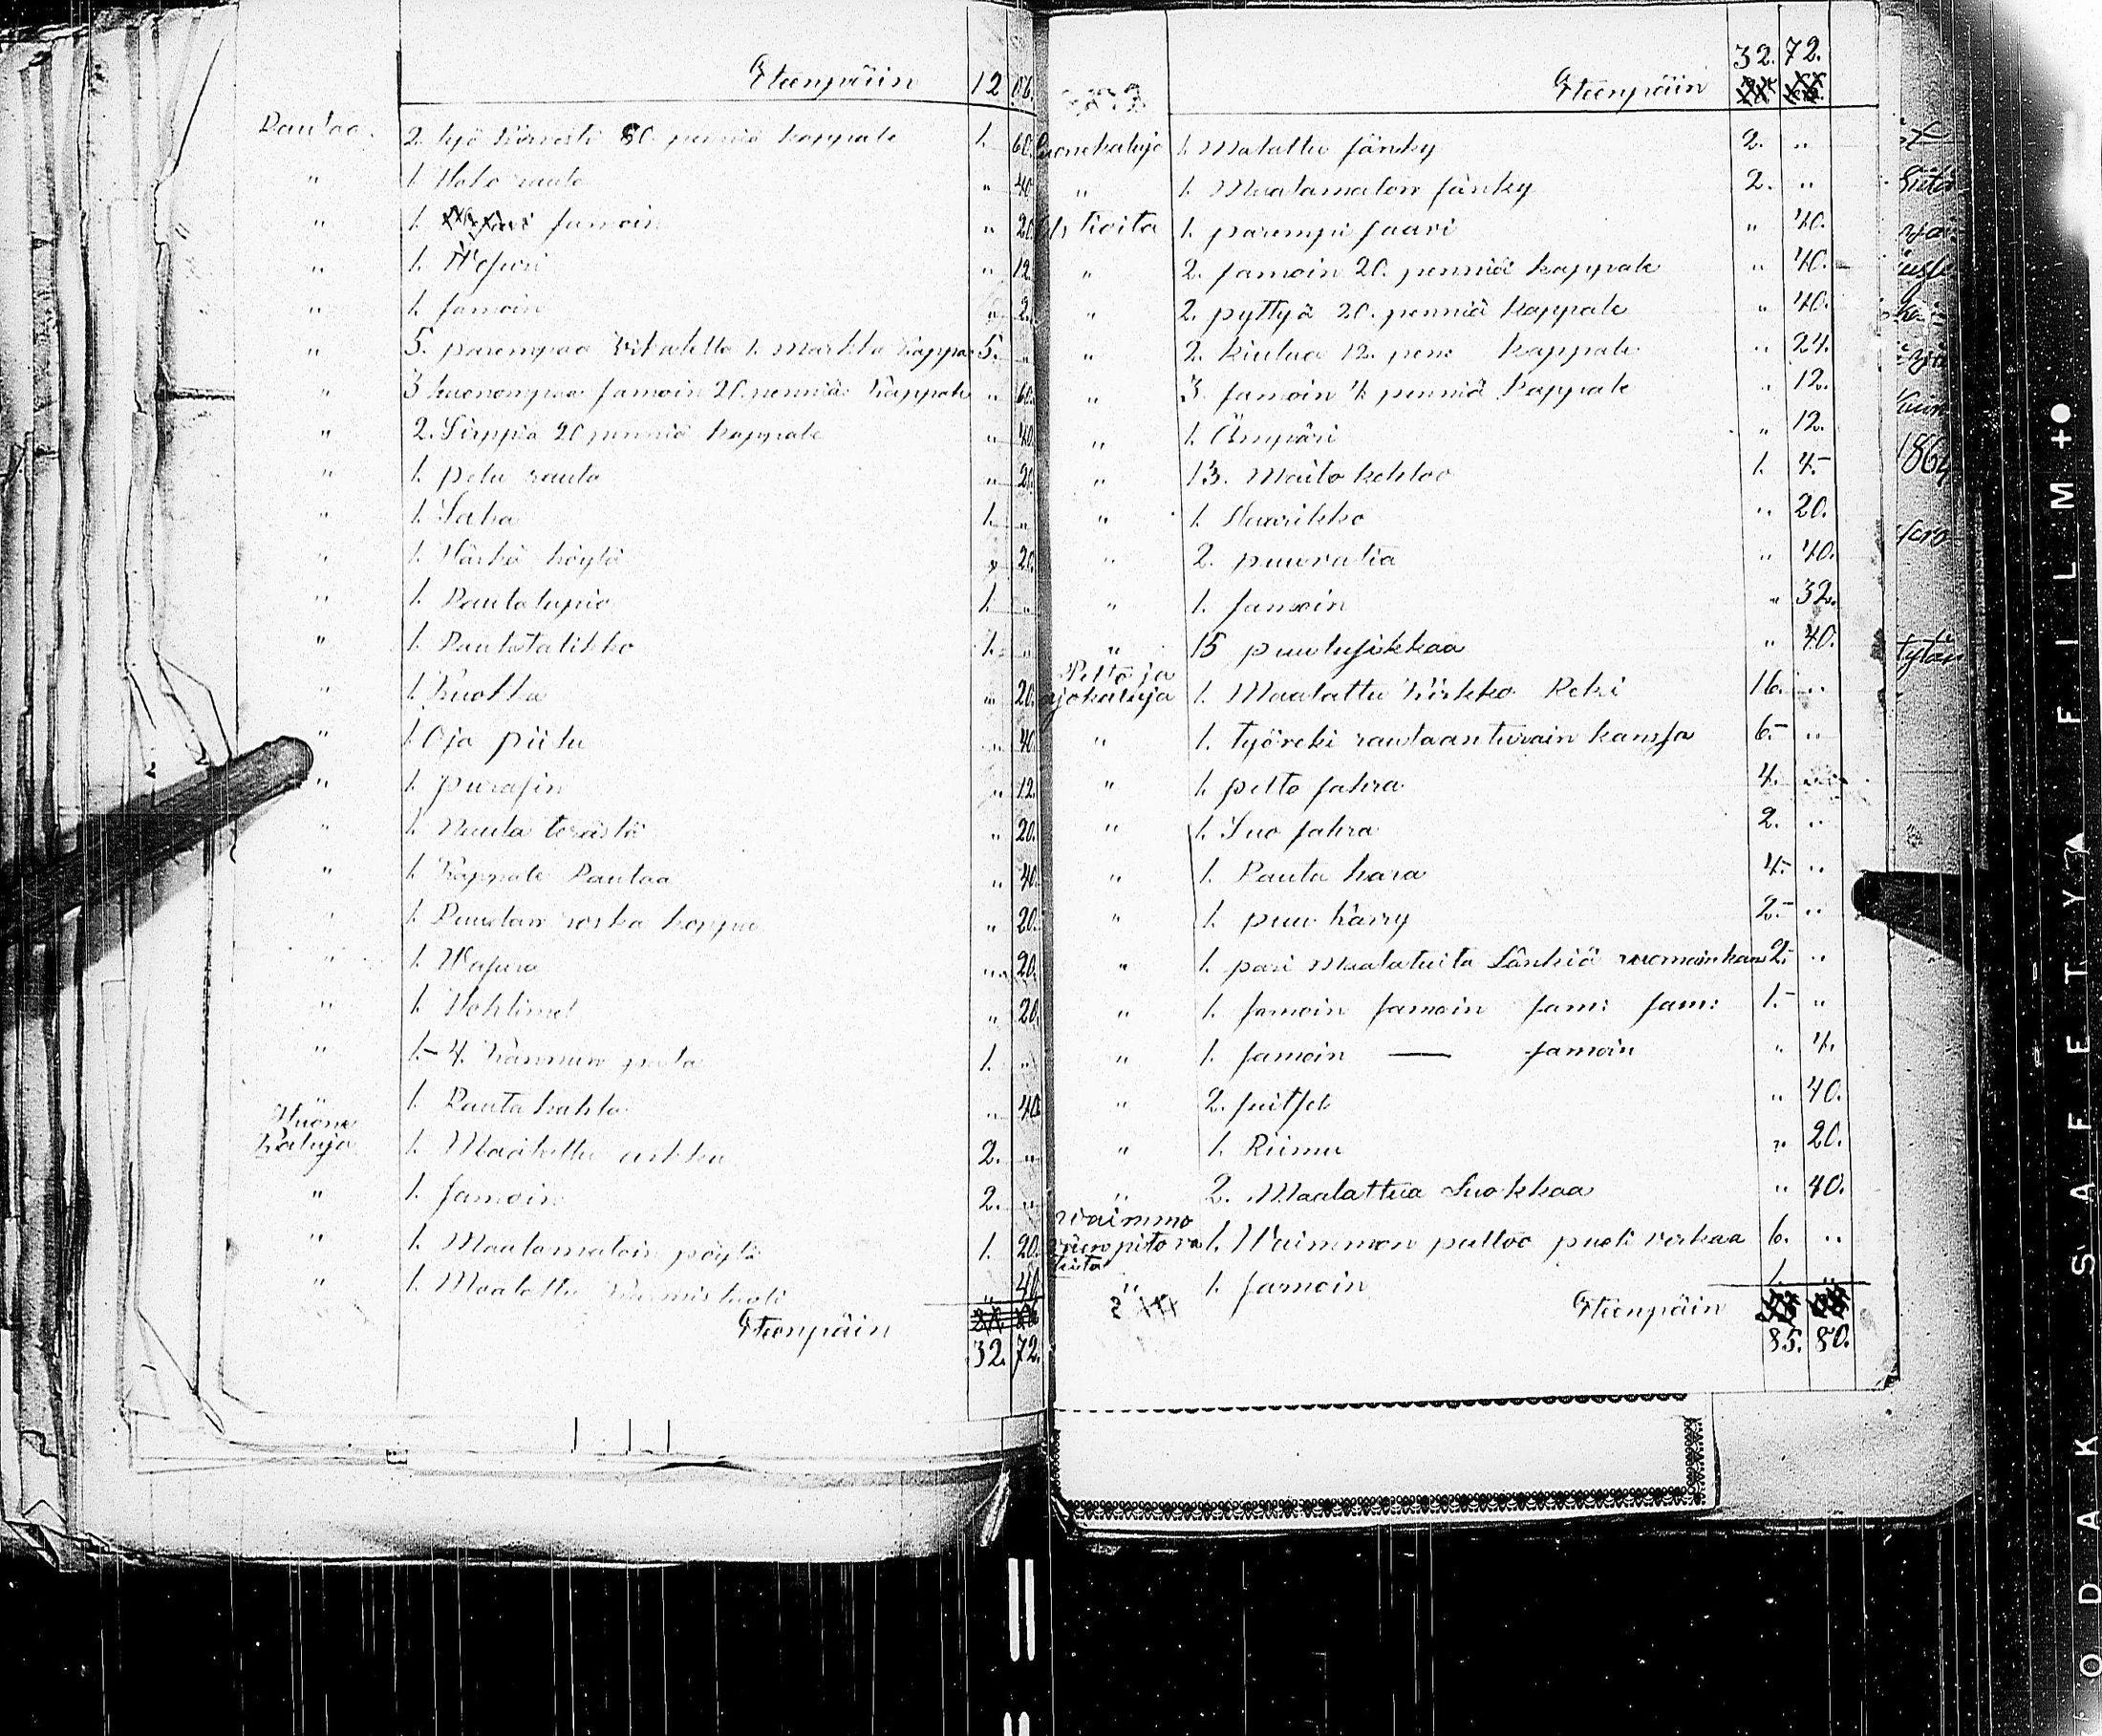 Eteenpäin 12 06.
Rautaa. 2. työ kirvestä 80. penniä kappale 1. 60.
" 1. Halo rauta " 40.
" 1. samoin " 20.
" 1. Wasara " 12.
" 1. samoin " 2.
" 5. parempaa Wikatetta 1. Markka kappa 5. "
" 3 huonompaa samoin 20. penniä kappale " 60.
" 2. Sirppiä 20 penniä kappale " 40.
" 1. petu rauta " 20.
" 1. Saha 1. "
" 1. Kärkö höylä " 20.
" 1. Rautalapio 1. "
" 1. Rautatalikko 1. "
" 1. Kuokka " 20.
" 1. Oja piilu " 40.
" 1. purasin " 12.
" 1. Naula terästä " 20.
" 1. Kappale Rautaa " 40.
" 1. Ruudan roska koppa " 20.
" 1. Wasara " 20.
" 1. Hohtimet " 20.
" 1.- 4. Kannun pata 1. "
" 1. Rautakahla " 40.
Huone
Kaluja 1. Maalattu arkku 2. "
" 1. samoin 2. "
" 1. Maalamatoin pöytä 1. 20.
" 1. Maalattu tuoli " 40.
Eteenpäin
32. 72.
32. 72.
Eteenpäin
Huonekaluja 1. Malattu sänky 2. "
" 1. Maalamaton sänky 2. "
Astioita 1. parempi saavi " 40.
" 2. samoin 20. penniä kappale " 40.-
" 2. pyttyä 20. penniä kappale " 40.
" 2. kiulua 12. pen: kappale " 24.
" 3. samoin 4 penniä kappale " 12.
" 1. Ämpäri " 12.
" 13. Maito kehloo 1. 4.-
" 1. Haarikko " 20.
" 2. puuvatia " 40.
" 1. samoin " 32.
" 15 puulusikkaa " 40.
Pelto ja
ajokaluja 1. Maalattu kirkko Reki 16. "
" 1. Työreki rautaanturain kanssa 6.- "
" 1. pelto sahra 4. "
" 1. Suo sahra 2. "
" 1. Rauta hara 4.- "
" 1. puu kärry 2.- "
" 1. pari Maalatuita Länkiä ruomainkans 2.- "
" 1. samoin samoin sam: sam: 1.- "
" 1. samoin — samoin " 4.
" 2. suitset " 40.
" 1. Riimu " 20.
" 2. Maalattua Luokkaa " 40.
waimmo
wäen pito va 1. Waimmon palttoo puoli verkaa 6. "
teita
" 1. samoin 1. "
Eteenpäin
85. 80.
1864
KODAK SAFETY FILM